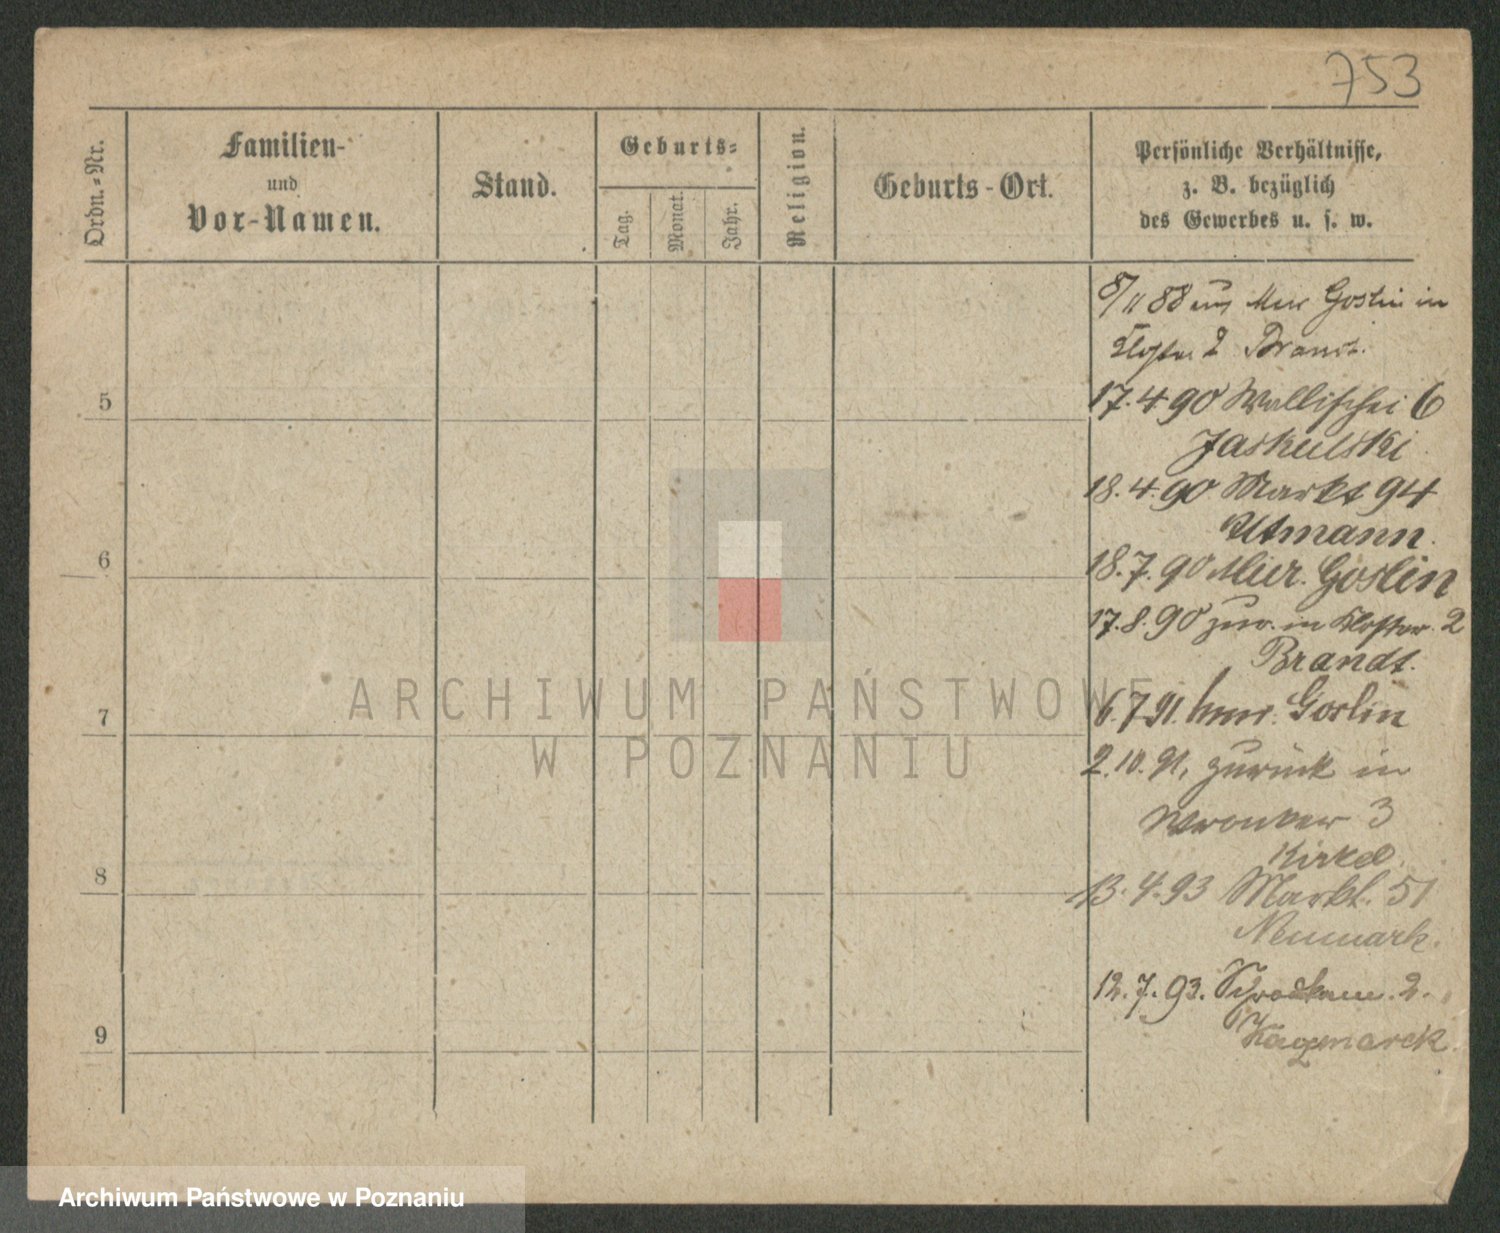 753
Ordn.-Nr.
Familien-
und
Vor-Namen.
Stand.
Geburts-
Tag.
Monat.
Jahr.
Religion.
Geburts-Ort.
Persönliche Verhältnisse,
z. B. bezüglich
des Gewerbes u. s. w.
8/11 88 Mur Goslin in
2 Brandt.
5
17.4.90 Wallischei 6
Jaskulski
18.4.90 Markt 94
Altmann.
6
18.7.90 Mur. Goslin
17.8.90 zur. in Kloster. 2
Brandt.
7
6.7.91. Mur. Goslin
2.10.91, zurück in
Wronker 3
8
13.4.93 Markt. 51
Neumark.
12.7.93. 2.
9
Kaczmarek
ARCHIWUM PAŃSTWOWE
W POZNANIU
Archiwum Państwowe w Poznaniu